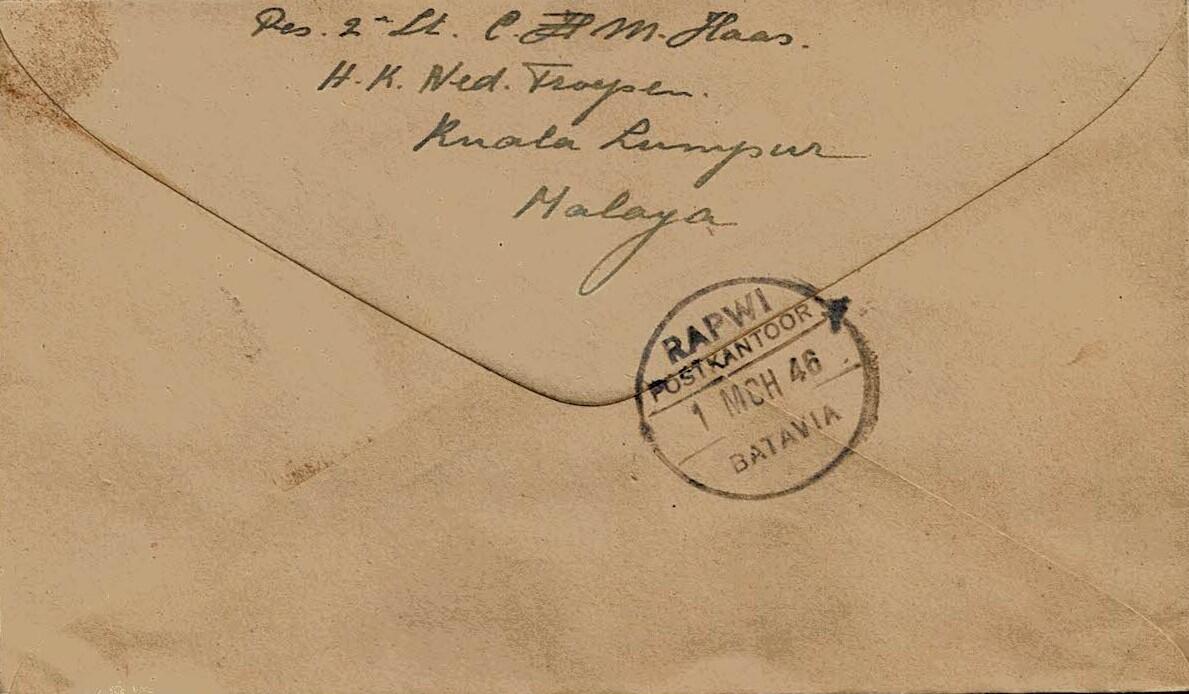 Res. 2e Lt. C. H M. Haas.
H. K. Ned. Troepen.
Kuala Lumpur
Malaya
RAPWI
POSTKANTOOR
1 MCH 46
BATAVIA